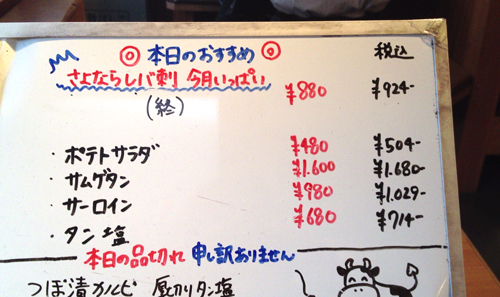 ◎ 本日のおすすめ ◎ 税込
さよならレバ刺 今月いっぱい ¥880 ¥924-
(終)
・ポテトサラダ ¥480 ¥504-
・サムゲタン ¥1.600 ¥1.680-
・サーロイン ¥980 ¥1.029-
・タン塩 ¥680 ¥714-
本日の品切れ 申し訳ありません
つぼ漬カルビ 厚切りタン塩